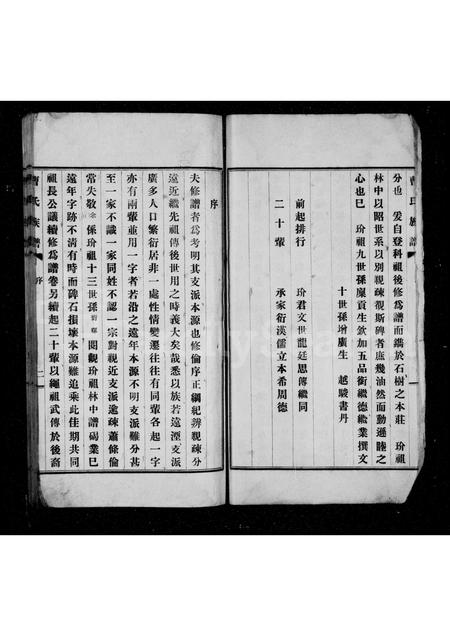 曹氏族譜
分也 爰自登科祖後修爲譜而鐫於石樹之本莊 玠祖
林中以昭世系以別親疎覩斯碑者庶幾油然而動遜睦之
心也已 玠祖九世孫廩貢生欽加五品銜繼德繼業撰文
十世孫增廣生 越駿書丹
前起排行 玠君文世龍廷思傳繼同
二十輩 承家衍漢儒立本希周德
序
夫修譜者爲考明其支派本源也修倫序正綱紀辨親疎分
遠近繼先祖傳後世用之時義大矣哉悉以族若遠湮支派
廣多人口繁衍居非一處性情變遷往往有同輩各起一字
亦有兩輩並用一字者若沿之遠年本源不明支派難分甚
至一家不識一家同姓不認一宗對視近支派逾疎蕭條倫
常失敬 係玠祖十三世孫 閱觀玠祖林中譜碣業已
遠年字跡不清有時而碑石損壞本源難追乘此佳期共同
祖長公議續修爲譜卷另續起二十輩以繩祖武傳於後裔
曹氏族譜 序 二